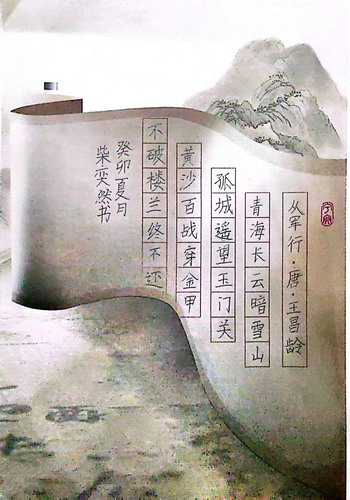 从军行·唐·王昌龄
青海长云暗雪山
孤城遥望玉门关
黄沙百战穿金甲
不破楼兰终不还
癸卯夏月
柴奕然书